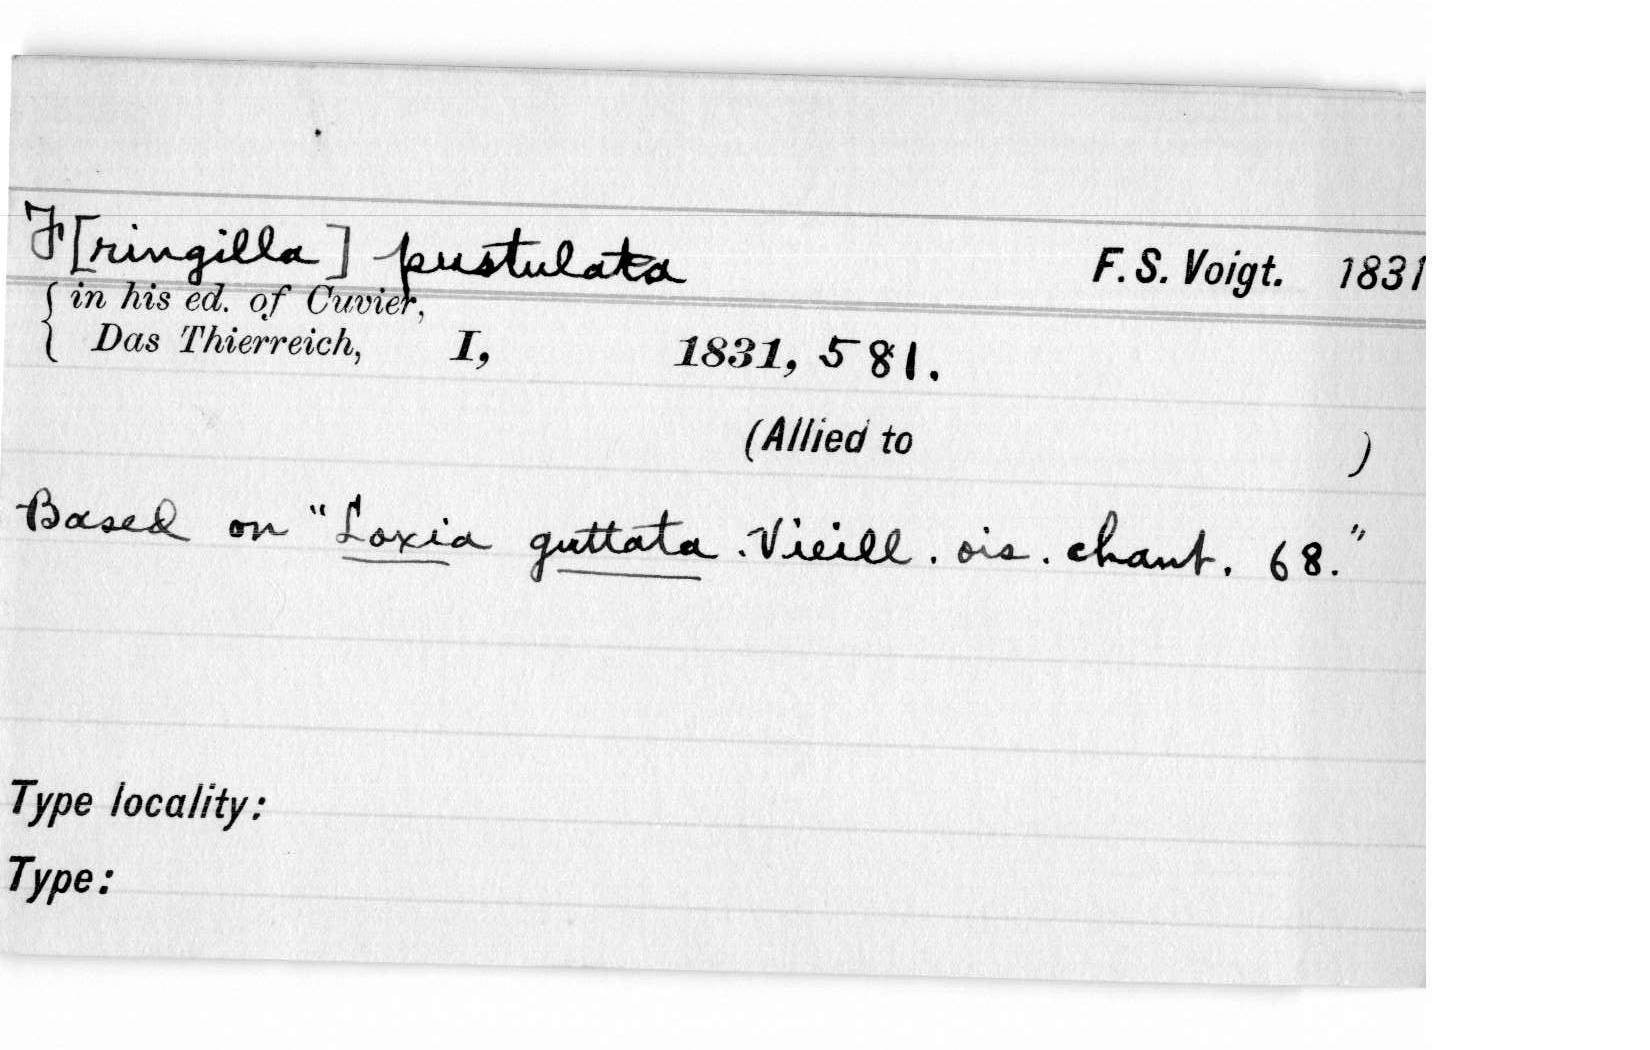 F[ringilla] pustulata F. S. Voigt. 1831
{ in his ed. of Cuvier,
Das Thierreich, I, 1831, 581.
(Allied to )
Based on "Loxia guttata. Vieill. ois. chant. 68."
Type locality:
Type: